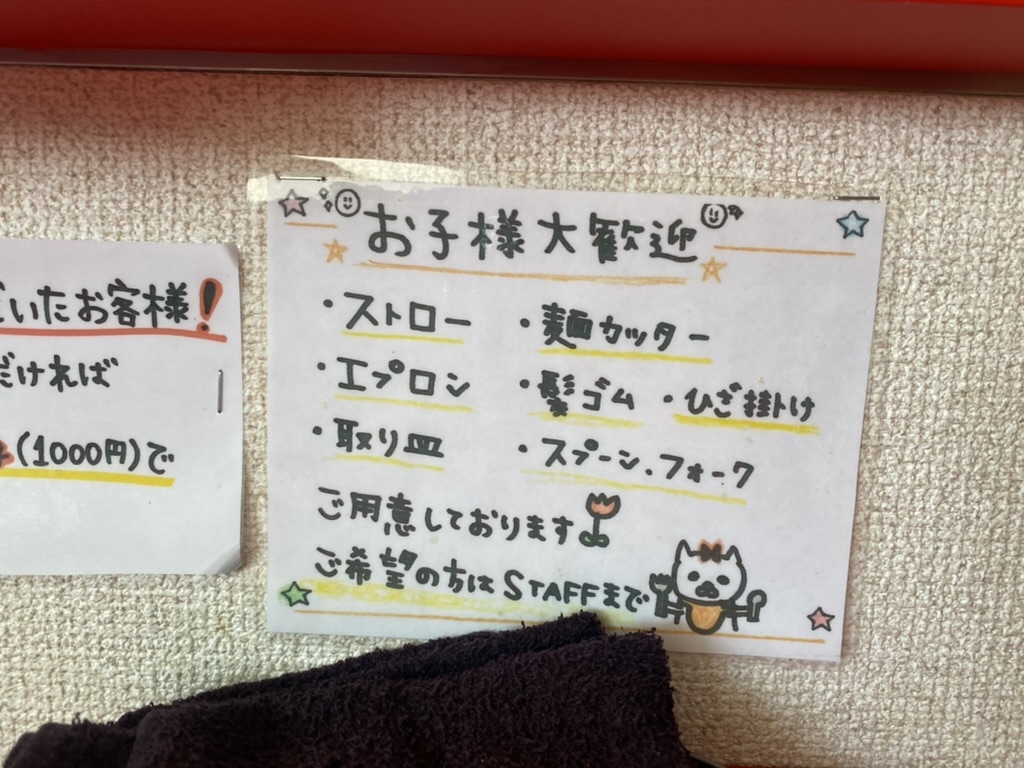 いたお客様!
だければ
(1000円)で
お子様大歓迎
・ストロー ・麺カッター
・エプロン ・髪ゴム ・ひざ掛け
・取り皿 ・スプーン、フォーク
ご用意しております
ご希望の方はSTAFFまで